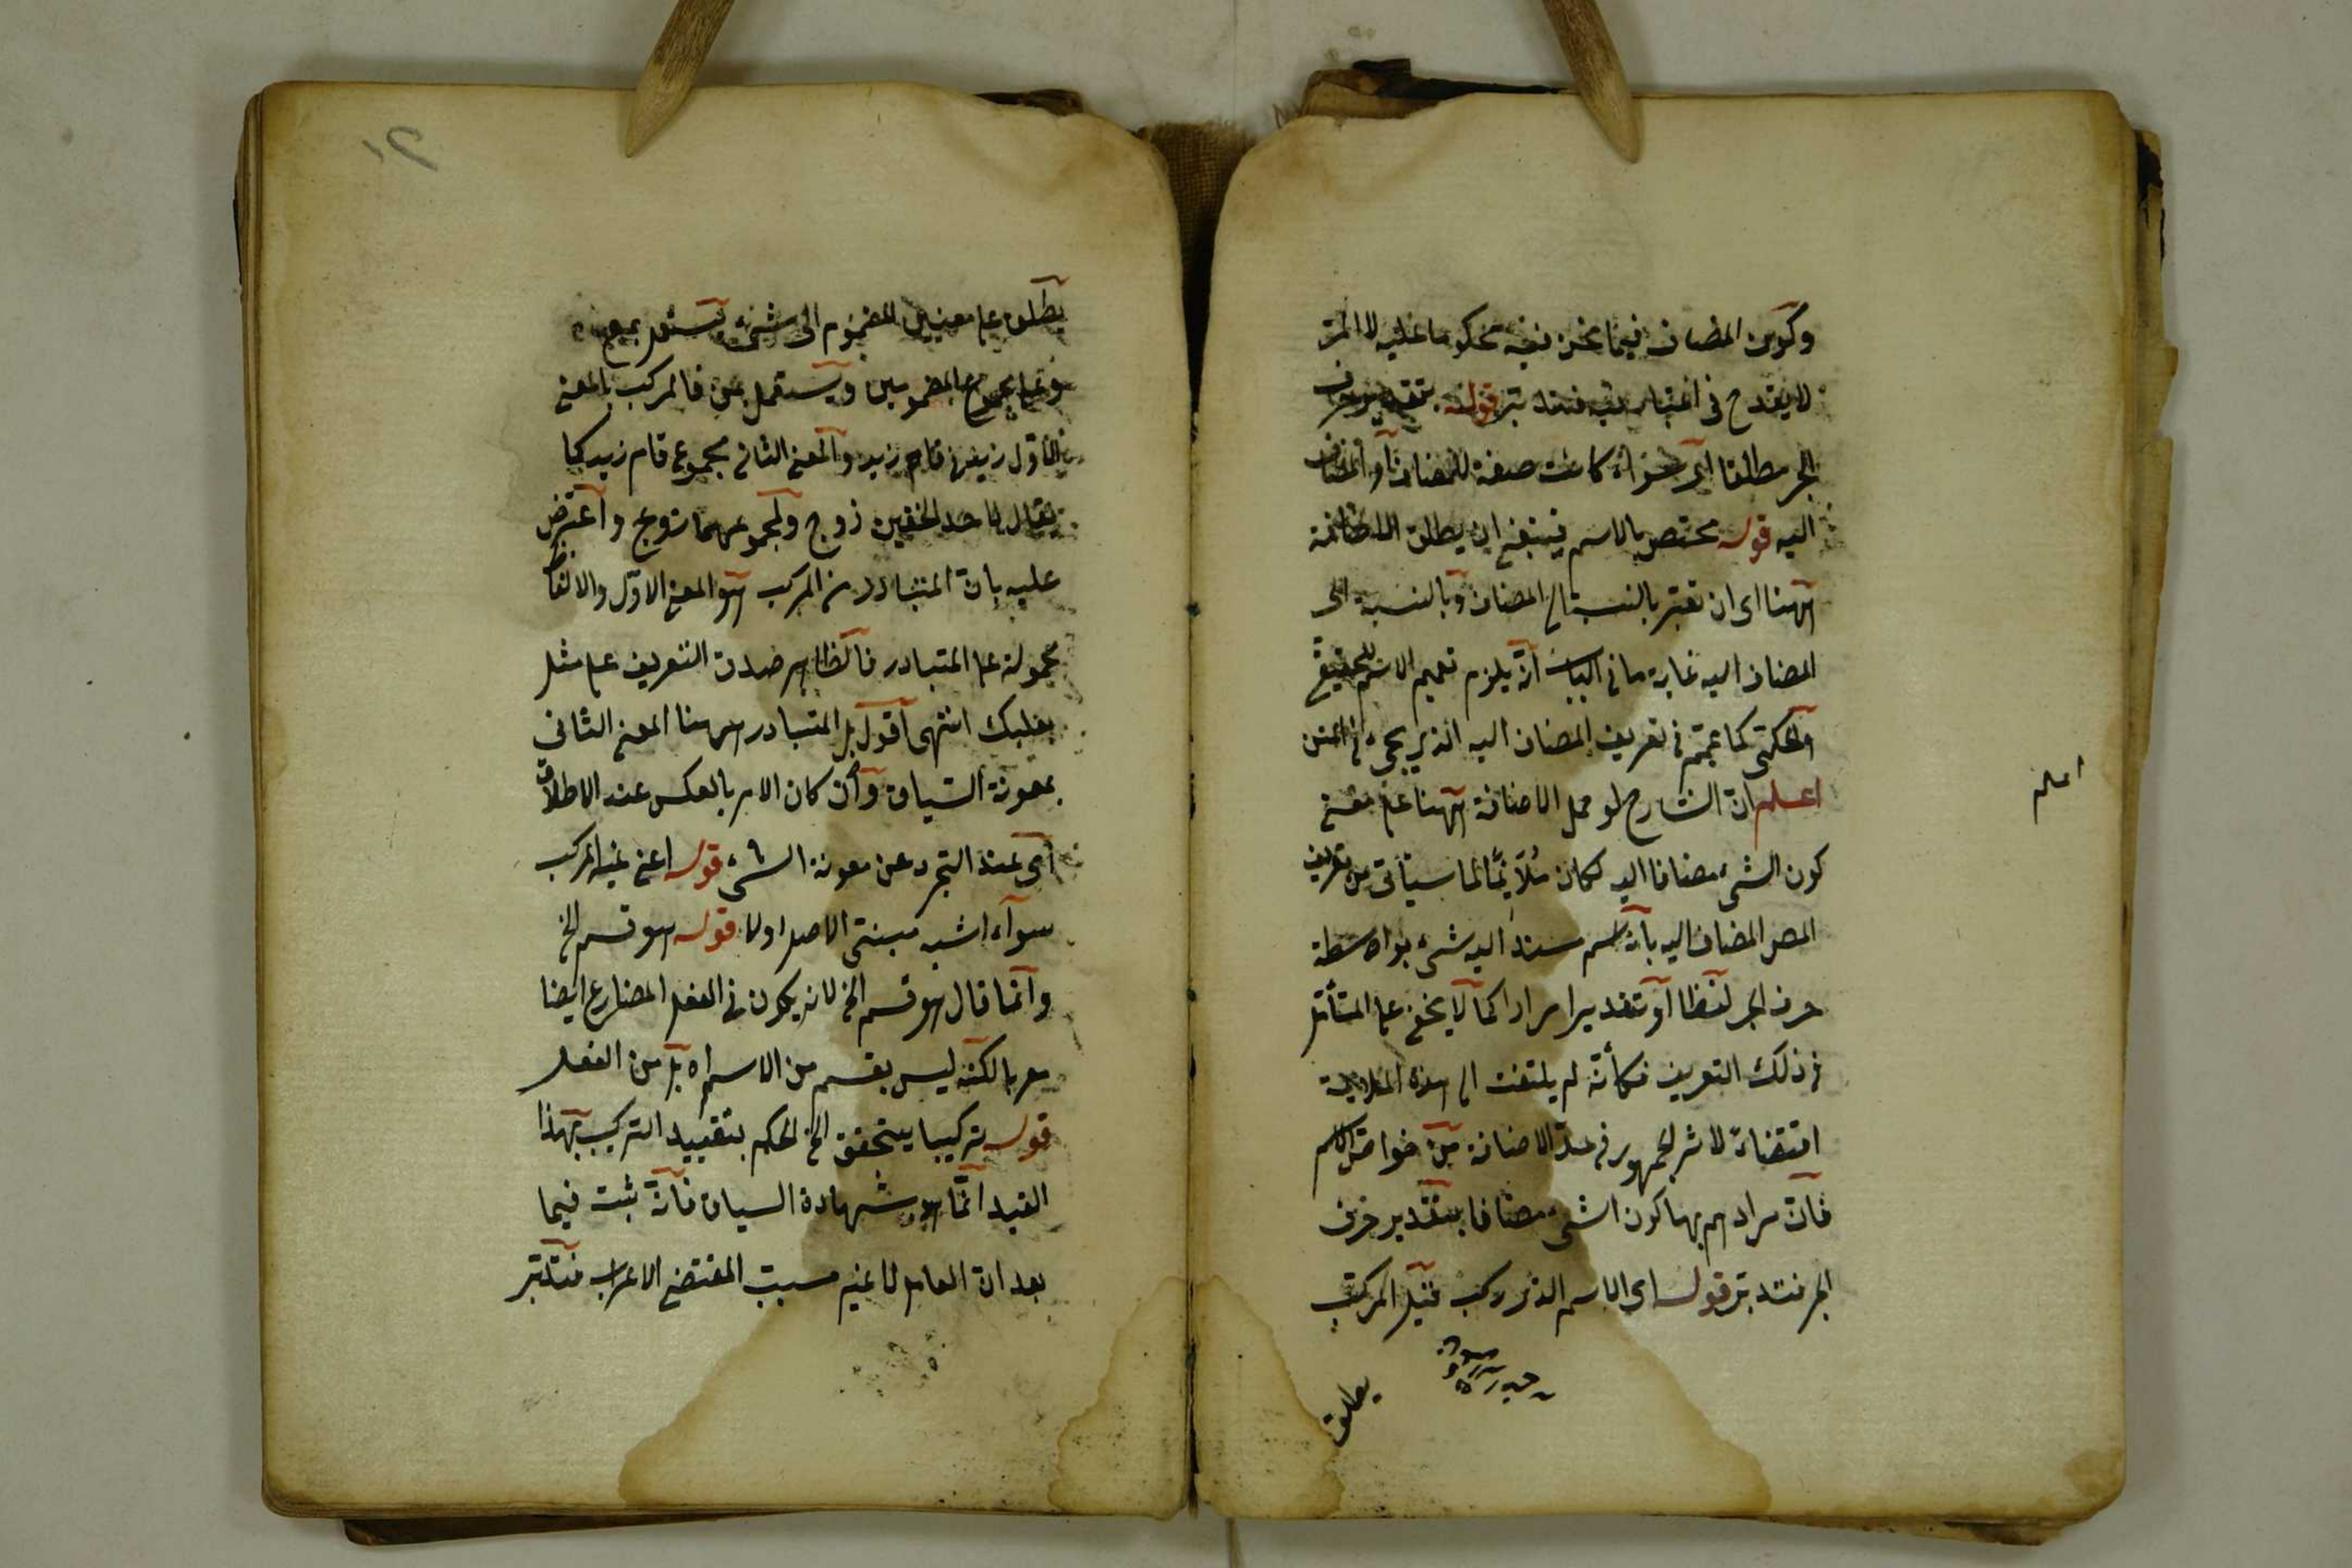 وكون المضاف فيما نحن فيه محكوما عليه لا المر
لا يقدح في اعتبار فتدبر قوله بتقدير حرف
الجر مطلقا اى سواء كانت صفة للمضاف او المضاف
اليه قوله مختص بالاسم فينبغى ان يطلق الاضافة
ههنا اى ان تعتبر بالنسبة الى المضاف وبالنسبة الى
المضاف اليه غاية ما فى الباب انه يلزم تعميم الاسم للحقيقى
والحكمى كما عمم فى تعريف المضاف اليه الذى يجىء فى المتن
اعلم ان الشارح لو حمل الاضافة ههنا على معنى
كون الشىء مضافا اليه لكان ملائما لما سيأتى من تعريف
المص المضاف اليه بانه اسم نسب اليه شىء بواسطة
حرف الجر لفظا او تقديرا مرادا كما لا يخفى على المتأمل
فى ذلك التعريف فكأنه لم يلتفت الى هذه الملايمة
اقتفاء لاثر الجمهور فى عد الاضافة من خواص الاسم
فان مرادهم بها كون الشىء مضافا بتقدير حرف
الجر فتدبر قوله اى الاسم الذى ركب قيل المركب
يطلق
اعلم
يطلق على معنيين المضموم الى شىء يستعمل بمع
وعلى مجموع المضمومين ويستعمل بمن فالمركب بالمعنى
الاول زيد فى قام زيد والمعنى الثانى مجموع قام زيد كما
يقال لاحد الخفين زوج ولمجموعهما زوج واعترض
عليه بان المتبادر من المركب هو المعنى الاول والالفاظ
محمولة على المتبادر فالظاهر صدق التعريف على مثل
بعلبك انتهى اقول بل المتبادر ههنا المعنى الثانى
بمعونة السياق وان كان الامر بالعكس عند الاطلاق
اى عند التجرد عن معونة الشىء قوله اعنى غير المركب
سواء اشبه مبنى الاصل اولا قوله هو قسم الخ
وانما قال هو قسم الخ لانه يكون فى الفعل المضارع ايضا
معربا لكنه ليس بقسم من الاسم اه بل من الفعل
قوله تركيبا يتحقق الخ الحكم بتقييد التركيب بهذا
القيد انما هو شهادة السياق فانه ثبت فيما
بعد ان العامل لا غير مسبب المقتضى الاعراب فتدبر